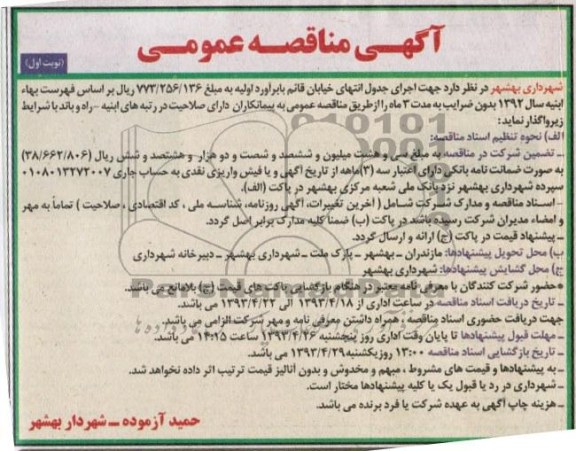 آگهـی مناقصـه عمومـی
(نوبت اول)
شهرداری بهشهر در نظر دارد جهت اجرای جدول انتهای خیابان قائم بابرآورد اولیه به مبلغ ۷۷۳/۲۵۶/۱۳۶ ریال بر اساس فهرست بهاء
ابنیه سال ۱۳۹۲ بدون ضرایب به مدت ۳ ماه را از طریق مناقصه عمومی به پیمانکاران دارای صلاحیت در رتبه های ابنیه -راه و باند با شرایط
زیر واگذار نماید:
الف) نحوه تنظیم اسناد مناقصه:
ـ تضمین شرکت در مناقصه به مبلغ سی و هشت میلیون و ششصد و شصت و دو هزار و هشتصد و شش ریال (۳۸/۶۶۲/۸۰۶)
به صورت ضمانت نامه بانکی دارای اعتبار سه (۳)ماهه از تاریخ آگهی و یا فیش واریزی نقدی به حساب جاری ۰۱۰۸۰۱۳۲۷۲۰۰۷
سپرده شهرداری بهشهر نزد بانک ملی شعبه مرکزی بهشهر در پاکت (الف).
-اسـناد مناقصه و مدارک شـرکت شـامل ( آخرین تغییرات، آگهی روزنامه، شناسـه ملی ، کد اقتصادی ، صلاحیت ) تماماً به مهر
و امضاء مدیران شرکت رسیده باشد در پاکت (ب) ضمناً کلیه مدارک برابر اصل گردد.
ـ پیشنهاد قیمت در پاکت (ج) ارائه و ارسال گردد.
ب) محل تحویل پیشنهادها: مازندران ـ بهشهر ـ پارک ملت ـ شهرداری بهشهر ـ دبیرخانه شهرداری
ج) محل گشایش پیشنهادها: شهرداری بهشهر
*حضور شرکت کنندگان با معرفی نامه معتبر در هنگام بازگشایی پاکت های قیمت (ج) بلامانع می باشد.
ـ تاریخ دریافت اسناد مناقصه در ساعت اداری از ۱۳۹۳/۴/۱۸ الی ۱۳۹۳/۴/۲۲ می باشد.
جهت دریافت حضوری اسناد مناقصه ، همراه داشتن معرفی نامه و مهر شرکت الزامی می باشد.
ـ مهلت قبول پیشنهادها تا پایان وقت اداری روز پنجشنبه ۱۳۹۳/۴/۲۶ ساعت ۱۴:۲۵ می باشد.
ـ تاریخ بازگشایی اسناد مناقصه ۱۳:۰۰ روز یکشنبه ۱۳۹۳/۴/۲۹ می باشد.
ـ به پیشنهادها و قیمت های مشروط ، مبهم و مخدوش و بدون آنالیز قیمت ترتیب اثر داده نخواهد شد.
ـ شهرداری در رد یا قبول یک یا کلیه پیشنهادها مختار است.
ـ هزینه چاپ آگهی به عهده شرکت یا فرد برنده می باشد.
حمید آزموده ـ شهردار بهشهر